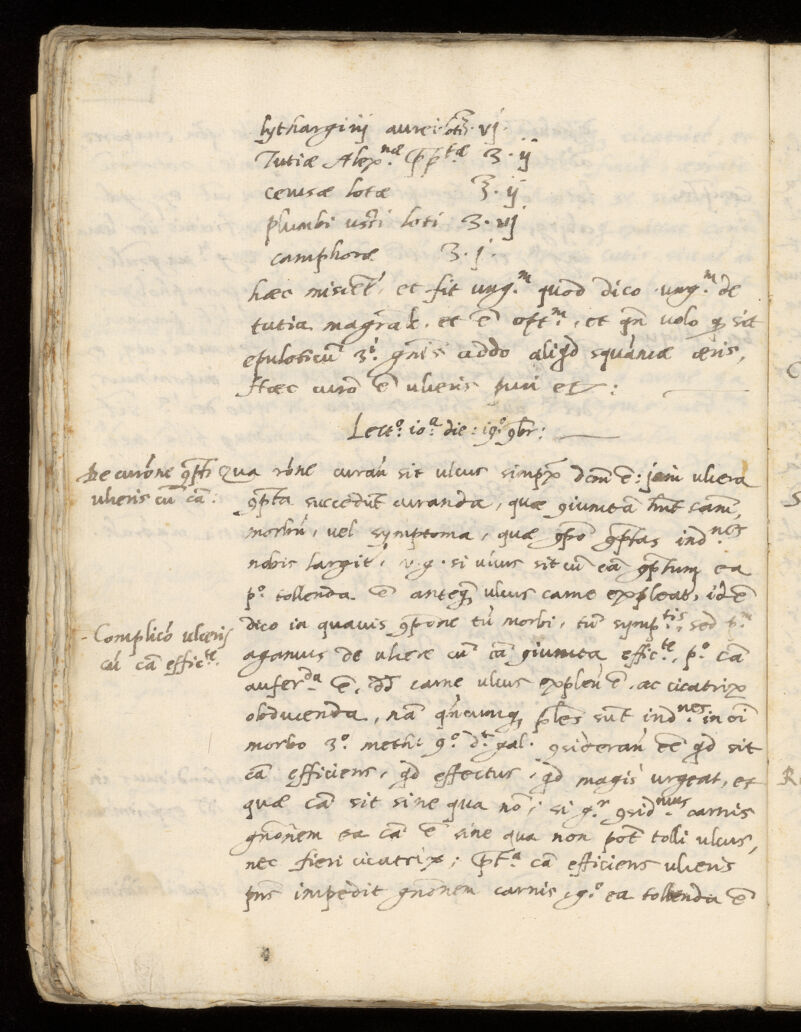 lythargirij aurei loti ʒ. vj.
Tutiæ Alex.næ p̄p.tæ ʒ. ij
cerusæ lotæ ʒ. ij
plumbi usti loti ʒ. vj
camphoræ ʒ. j.
hæc miscet~, et fit ung.m quod dico ung.m de
tutia magrāl. et ē opt.m, et qn̄ volo q; sit
epuloticū 3.i gn̄is addo aliqd squāmæ æris,
Hæc curō ē ulceris puri etc:
Lect.o io.a die: 19.o 9br:
De curōne 9pti
ulceris cū cā:
Qua rōne curan̄ sit ulcus simplx dcm̄ ē: jam ulcera
9pta succedūt curanda, quæ 9iunctā hn̄t cam̄,
morbū, vel symptoma, quæ 9pta ind.nes
nobis largit~, v.g. si ulcus sit cū cā 9ptum ea
p.o tollenda ē anteq; ulcus carne expleat~, id ē
dico in quavis 9pone tū morbi, tū symp.tis, sed
- Complicō ulceris
cū cā effic.te.
agamus de ulcere cū cā 9iuncta effic.te, p.o cā
aufer.da ē, dd carne ulcus explen̄ ē, ac cicatrix
obducenda, nā qn̄cunq; ples sūt ind.nes in oī
morbo 3.o meth: 9.o d.t gal. 9sideran̄ ēē qd sit
cā efficiens, qd effectus, qd magis urgeat, et
quæ cā sit sine qua nō; si g.r 9sid. carnis
gnōnem ea cā ē sine qua non pot̄ tolli ulcus,
nec fieri cicatrix; p̄t.a cā efficiens ulceris
pn̄s impedit gnōnem carnis, g.o ea tollenda ē